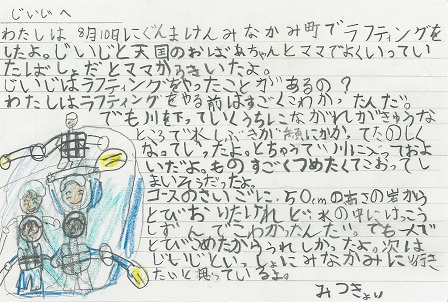 じいじへ
わたしは8月10日にぐんまけんみなかみ町でラフティングを
したよ。じいじと天国のおばあちゃんとママでよくいってい
たばしょだとママからきいたよ。
じいじはラフティングをやったことがあるの?
わたしはラフティングをやる前はすごくこわかったんだ。
でも川を下っていくうちにながれがきゅうな
ところで水しぶきが顔にかかってたのしく
なっていったよ。とちゅうで川に入っておよ
いだよ。ものすごくつめたくてこおってし
まいそうだったよ。
コースのさいごに、50cmの高さの岩から
とびおりたけれど水の中にけっこう
しずんでこわかったんだ。でも一人で
とびこめたからうれしかったよ。次は
じいじといっしょにみなかみに行き
たいと思っているよ。
みつきより